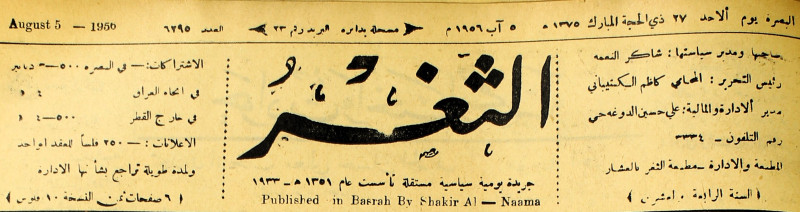 البصرة يوم الاحد ٢٧ ذي الحجة المبارك ١٣٧٥ هـ
٥ آب ١٩٥٦ م
مسجلة بدائرة البريد رقم ٢٣
العدد ٦٢٩٥
August 5 — 1956
صاحبها ومدير سياستها: شاكر النعمه
رئيس التحرير: المحامي كاظم
مدير الادارة والمالية: علي حسين الدوغه جي
رقم التلفون - ٣٣٣٤
المطبعة والادارة - مطبعة الثغر بالعشار
( السنة الرابعة و العشرين )
الثغر
جريدة يومية سياسية مستقلة تأسست عام ١٣٥١ هـ - ١٩٣٣
Published in Basrah By Shakir Al — Naama
الاشتراكات: — في البصره ٥٠٠—٣ دنانير
في انحاء العراق ٤ »
في خارج القطر ٥٠٠—٤ »
الاعلانات: — ٢٥٠ فلساً للعقد الواحد
ولمدة طويلة تراجع بشأنها الادارة
( ٦ صفحات ثمن النسخة ١٠ فلوس )